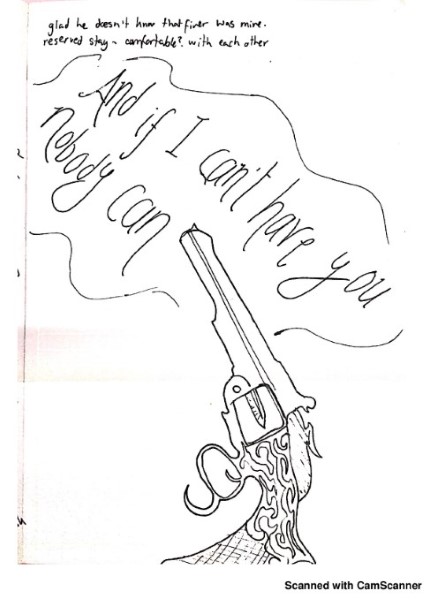 glad he doesn't know that finer was mine.
reserved stay - comfortable? with each other
And if I can't have you
Nobody can
Scanned with CamScanner